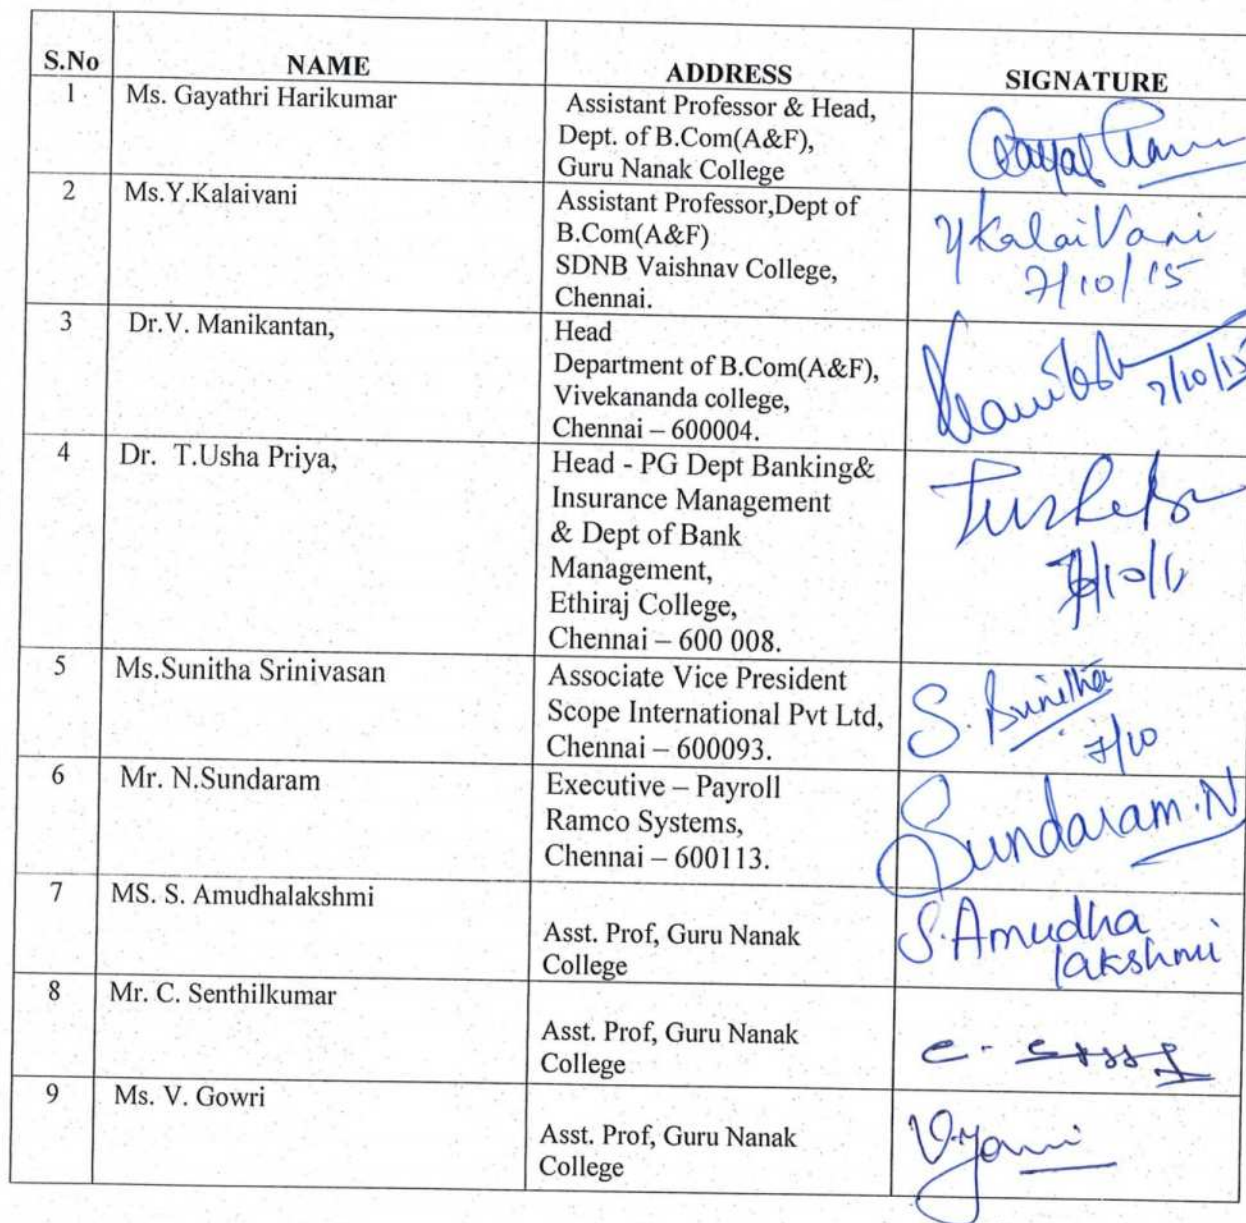 S.No NAME ADDRESS SIGNATURE
1 Ms. Gayathri Harikumar Assistant Professor & Head,
Dept. of B.Com(A&F),
Guru Nanak College
2 Ms.Y.Kalaivani Assistant Professor,Dept of
B.Com(A&F)
SDNB Vaishnav College,
Chennai.
Y KalaiVani
7/10/15
3 Dr.V. Manikantan, Head
Department of B.Com(A&F),
Vivekananda college,
Chennai – 600004.
7/10/15
4 Dr. T.Usha Priya, Head - PG Dept Banking&
Insurance Management
& Dept of Bank
Management,
Ethiraj College,
Chennai – 600 008.
5 Ms.Sunitha Srinivasan Associate Vice President
Scope International Pvt Ltd,
Chennai – 600093.
S. Sunitha
7/10
6 Mr. N.Sundaram Executive – Payroll
Ramco Systems,
Chennai – 600113.
Sundaram.N
7 MS. S. Amudhalakshmi
Asst. Prof, Guru Nanak
College
S.Amudha
lakshmi
8 Mr. C. Senthilkumar
Asst. Prof, Guru Nanak
College
9 Ms. V. Gowri
Asst. Prof, Guru Nanak
College